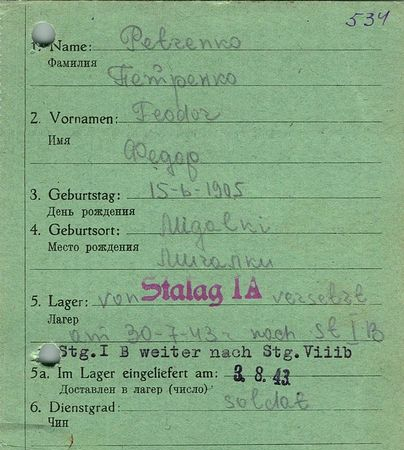 534
1. Name: Petrenko
Фамилия
Петренко
2. Vornamen: Feodor
Имя
Федор
3. Geburtstag: 15-6-1905
День рождения
4. Geburtsort: Migalki
Место рождения
Мигалки
5. Lager: von Stalag IA versetzt
Лагерь
am 30-7-43 nach St I B
Stg. I B weiter nach Stg.Viiib
5a. Im Lager eingeliefert am: 3. 8. 43
Доставлен в лагерь (число)
6. Dienstgrad: soldat
Чин